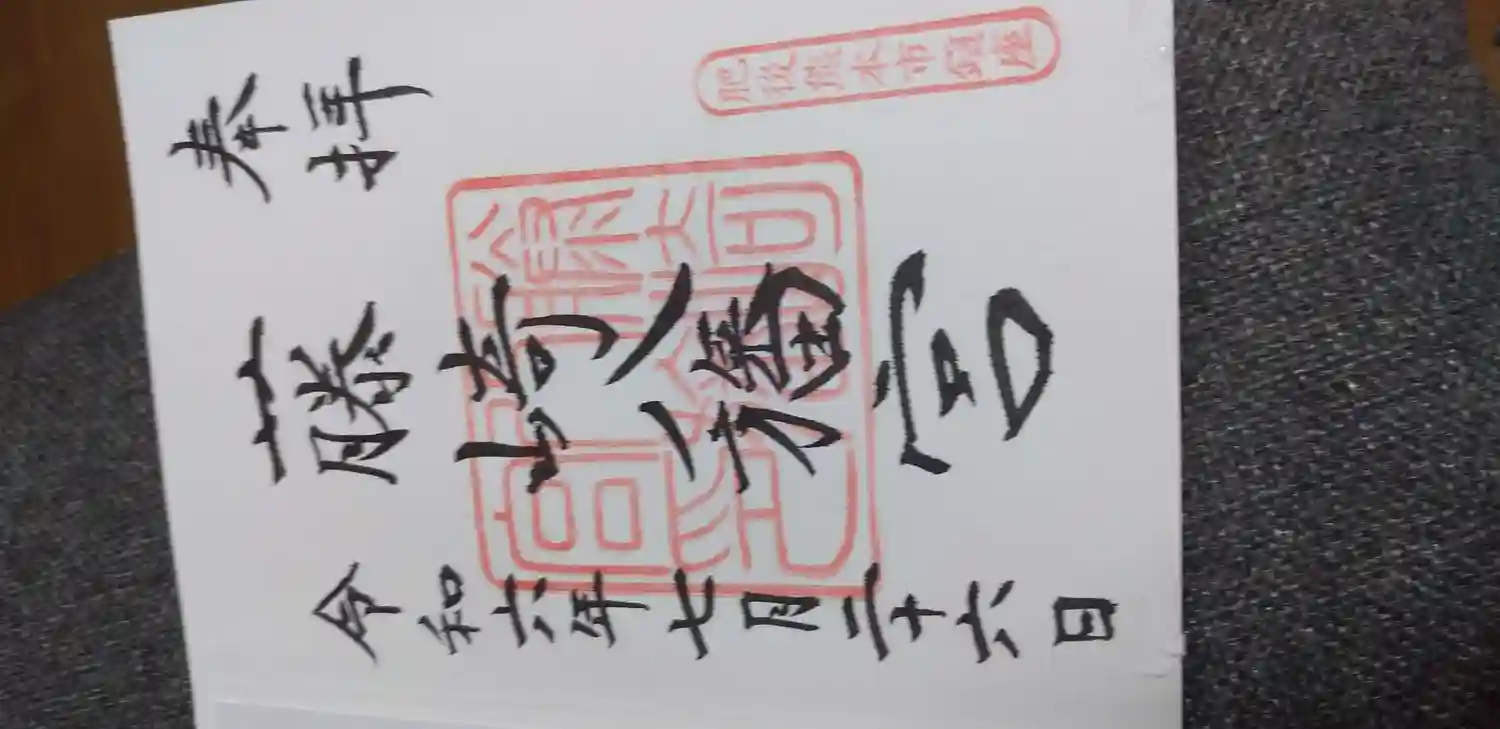 奉拝
肥後熊本市鎮座
藤崎八旛宮
令和六年七月二十六日